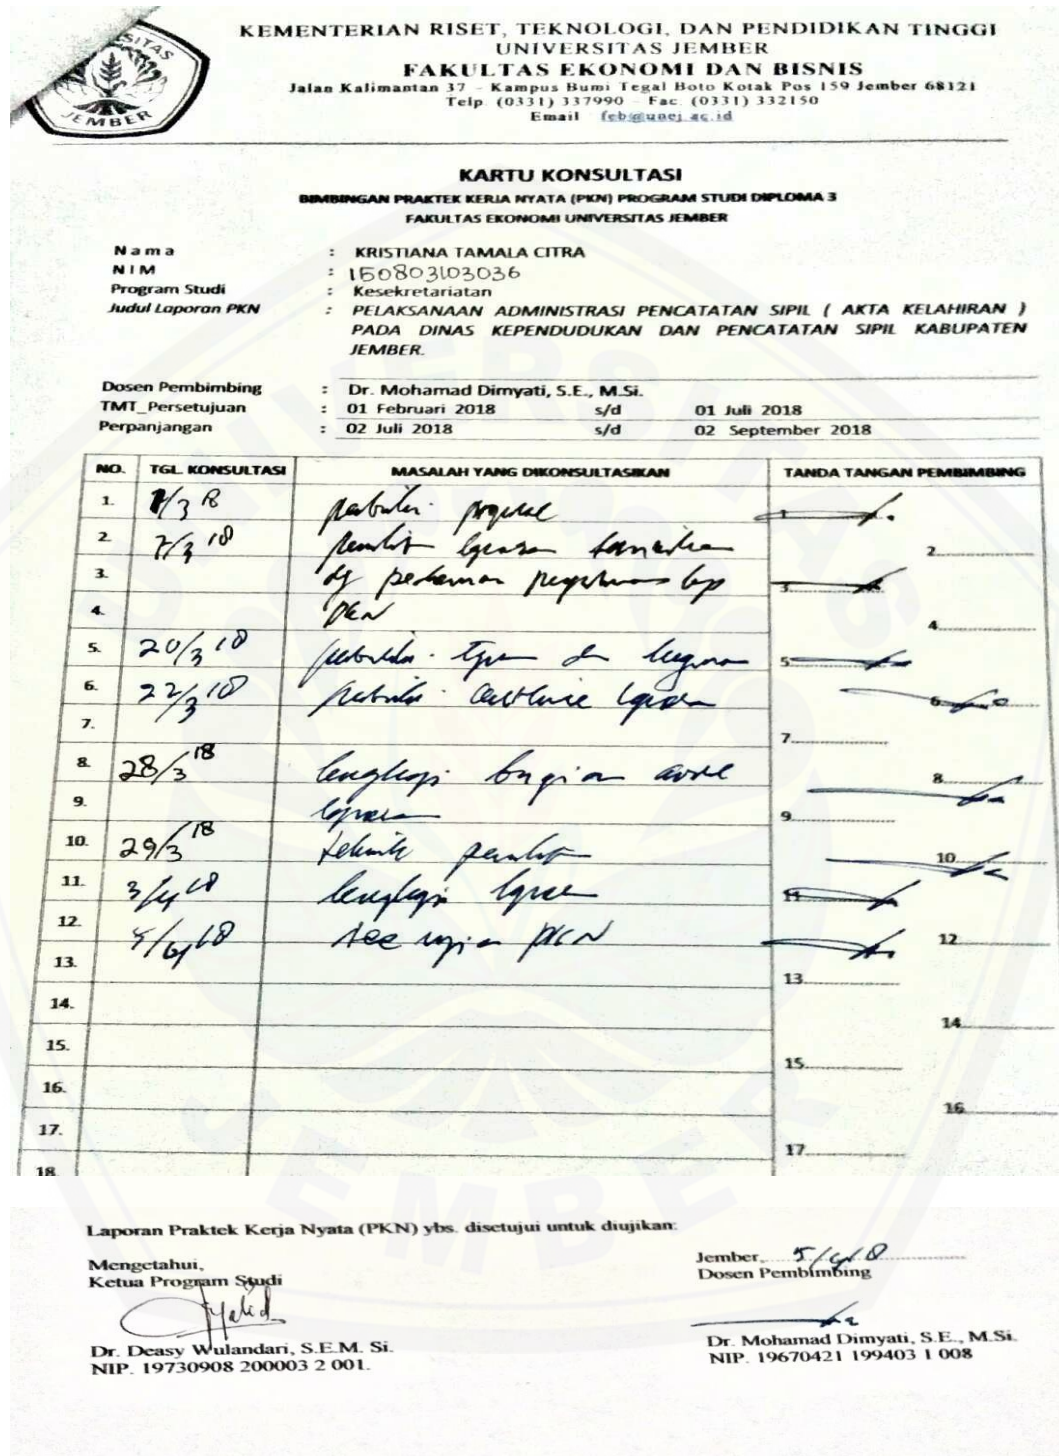 KEMENTERIAN RISET, TEKNOLOGI, DAN PENDIDIKAN TINGGI
UNIVERSITAS JEMBER
FAKULTAS EKONOMI DAN BISNIS
Jalan Kalimantan 37 - Kampus Bumi Tegal Boto Kotak Pos 159 Jember 68121
Telp. (0331) 337990 - Fac. (0331) 332150
Email feb@unej.ac.id
JEMBER
KARTU KONSULTASI
BIMBINGAN PRAKTEK KERJA NYATA (PKN) PROGRAM STUDI DIPLOMA 3
FAKULTAS EKONOMI UNIVERSITAS JEMBER
Nama : KRISTIANA TAMALA CITRA
NIM : 150803103036
Program Studi : Kesekretariatan
Judul Laporan PKN : PELAKSANAAN ADMINISTRASI PENCATATAN SIPIL ( AKTA KELAHIRAN )
PADA DINAS KEPENDUDUKAN DAN PENCATATAN SIPIL KABUPATEN
JEMBER.
Dosen Pembimbing : Dr. Mohamad Dimyati, S.E., M.Si.
TMT_Persetujuan : 01 Februari 2018 s/d 01 Juli 2018
Perpanjangan : 02 Juli 2018 s/d 02 September 2018
NO. TGL. KONSULTASI MASALAH YANG DIKONSULTASIKAN TANDA TANGAN PEMBIMBING
1. 1
2. 7/3 18 2
3. 3
4. PKN 4
5. 20/3 18 5
6. 22/3 18 outline 6
7. 7
8. 28/3 18 lengkapi bagian awal 8
9. laporan 9
10. 29/3 18 teknik 10
11. 3/4 18 lengkapi 11
12. acc ujian PKN 12
13. 13
14. 14
15. 15
16. 16
17. 17
18.
Laporan Praktek Kerja Nyata (PKN) ybs. disetujui untuk diujikan:
Mengetahui, Jember,
Ketua Program Studi Dosen Pembimbing
Dr. Deasy Wulandari, S.E.M. Si. Dr. Mohamad Dimyati, S.E., M.Si.
NIP. 19730908 200003 2 001. NIP. 19670421 199403 1 008